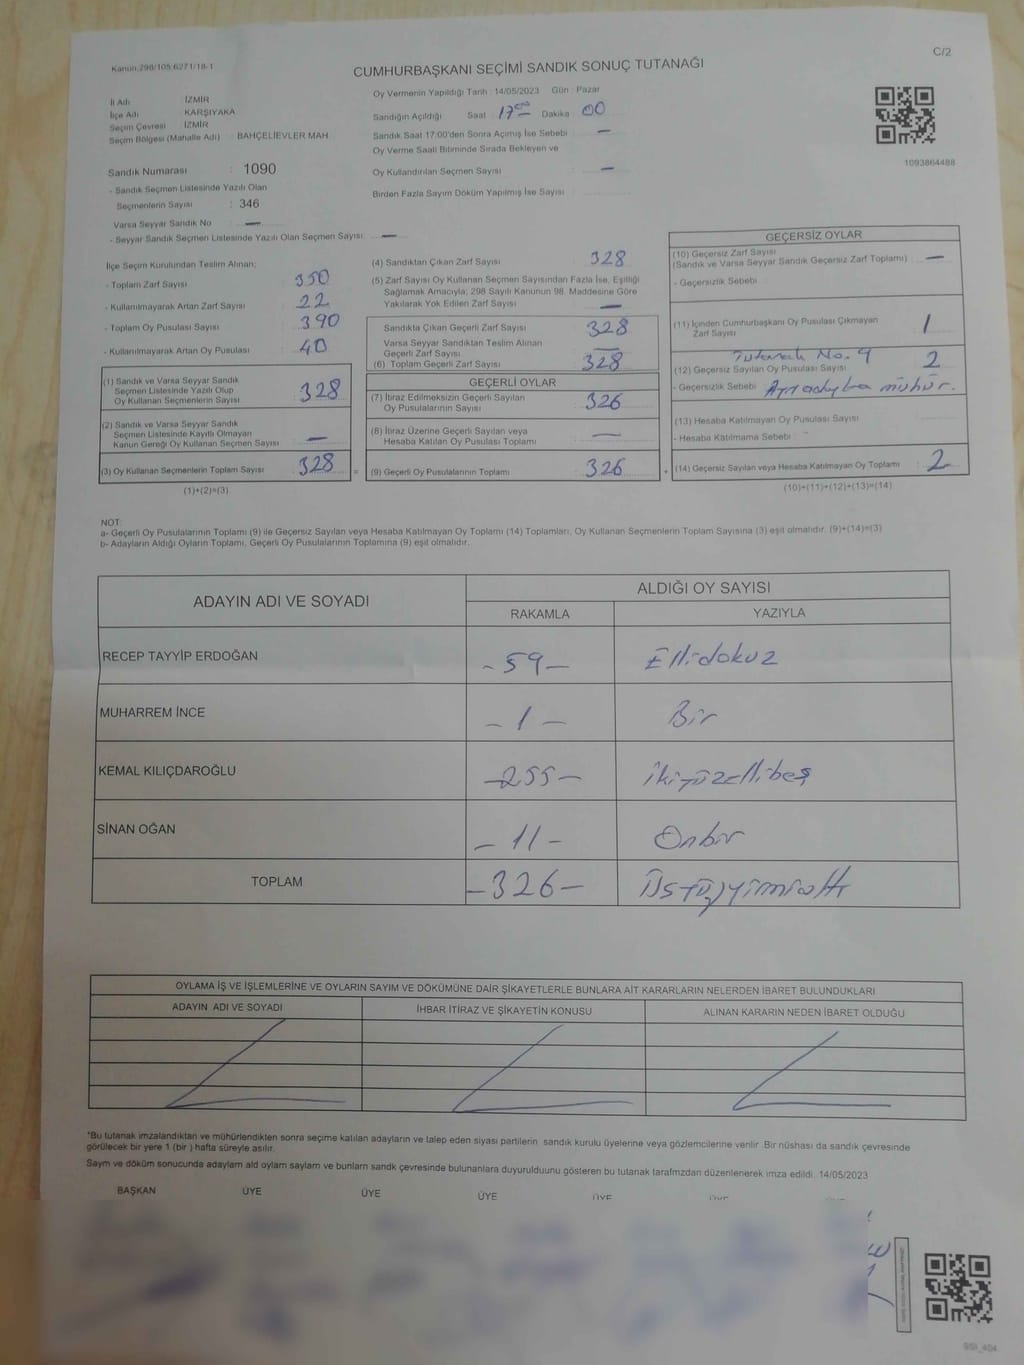 Kanun:298/105,6271/18-1
C/2
CUMHURBAŞKANI SEÇİMİ SANDIK SONUÇ TUTANAĞI
İl Adı : İZMİR
İlçe Adı : KARŞIYAKA
Seçim Çevresi : İZMİR
Seçim Bölgesi (Mahalle Adı) : BAHÇELİEVLER MAH.
Sandık Numarası : 1090
- Sandık Seçmen Listesinde Yazılı Olan
Seçmenlerin Sayısı : 346
Varsa Seyyar Sandık No : —
- Seyyar Sandık Seçmen Listesinde Yazılı Olan Seçmen Sayısı: —
Oy Vermenin Yapıldığı Tarih : 14/05/2023 Gün : Pazar
Sandığın Açıldığı Saat : 17 00 Dakika : 00
Sandık Saat 17:00'den Sonra Açılmış İse Sebebi : —
Oy Verme Saati Bitiminde Sırada Bekleyen ve
Oy Kullandırılan Seçmen Sayısı : —
Birden Fazla Sayım Döküm Yapılmış İse Sayısı :
1093864488
İlçe Seçim Kurulundan Teslim Alınan;
- Toplam Zarf Sayısı : 350
- Kullanılmayarak Artan Zarf Sayısı : 22
- Toplam Oy Pusulası Sayısı : 390
- Kullanılmayarak Artan Oy Pusulası : 40
(1) Sandık ve Varsa Seyyar Sandık
Seçmen Listesinde Yazılı Olup
Oy Kullanan Seçmenlerin Sayısı : 328
(2) Sandık ve Varsa Seyyar Sandık
Seçmen Listesinde Kayıtlı Olmayan
Kanun Gereği Oy Kullanan Seçmen Sayısı : —
(3) Oy Kullanan Seçmenlerin Toplam Sayısı : 328 =
(1)+(2)=(3)
(4) Sandıktan Çıkan Zarf Sayısı : 328
(5) Zarf Sayısı Oy Kullanan Seçmen Sayısından Fazla İse, Eşitliği
Sağlamak Amacıyla; 298 Sayılı Kanunun 98. Maddesine Göre
Yakılarak Yok Edilen Zarf Sayısı : —
Sandıkta Çıkan Geçerli Zarf Sayısı : 328
Varsa Seyyar Sandıktan Teslim Alınan
Geçerli Zarf Sayısı : —
(6) Toplam Geçerli Zarf Sayısı : 328
GEÇERLİ OYLAR
(7) İtiraz Edilmeksizin Geçerli Sayılan
Oy Pusulalarının Sayısı : 326
(8) İtiraz Üzerine Geçerli Sayılan veya
Hesaba Katılan Oy Pusulası Toplamı : —
(9) Geçerli Oy Pusulalarının Toplamı : 326 +
GEÇERSİZ OYLAR
(10) Geçersiz Zarf Sayısı
(Sandık ve Varsa Seyyar Sandık Geçersiz Zarf Toplamı) : —
- Geçersizlik Sebebi :
(11) İçinden Cumhurbaşkanı Oy Pusulası Çıkmayan
Zarf Sayısı : 1
Tutanak No. 9
(12) Geçersiz Sayılan Oy Pusulası Sayısı : 2
- Geçersizlik Sebebi :
(13) Hesaba Katılmayan Oy Pusulası Sayısı :
- Hesaba Katılmama Sebebi :
(14) Geçersiz Sayılan veya Hesaba Katılmayan Oy Toplamı : 2
(10)+(11)+(12)+(13)=(14)
NOT:
a- Geçerli Oy Pusulalarının Toplamı (9) ile Geçersiz Sayılan veya Hesaba Katılmayan Oy Toplamı (14) Toplamları, Oy Kullanan Seçmenlerin Toplam Sayısına (3) eşit olmalıdır. (9)+(14)=(3)
b- Adayların Aldığı Oyların Toplamı, Geçerli Oy Pusulalarının Toplamına (9) eşit olmalıdır.
ADAYIN ADI VE SOYADI
ALDIĞI OY SAYISI
RAKAMLA YAZIYLA
RECEP TAYYİP ERDOĞAN - 59 - Ellidokuz
MUHARREM İNCE - 1 - Bir
KEMAL KILIÇDAROĞLU - 255 - ikiyüzellibeş
SİNAN OĞAN - 11 - Onbir
TOPLAM - 326 -
OYLAMA İŞ VE İŞLEMLERİNE VE OYLARIN SAYIM VE DÖKÜMÜNE DAİR ŞİKAYETLERLE BUNLARA AİT KARARLARIN NELERDEN İBARET BULUNDUKLARI
ADAYIN ADI VE SOYADI İHBAR İTİRAZ VE ŞİKAYETİN KONUSU ALINAN KARARIN NEDEN İBARET OLDUĞU
*Bu tutanak imzalandıktan ve mühürlendikten sonra seçime katılan adayların ve talep eden siyasi partilerin sandık kurulu üyelerine veya gözlemcilerine verilir. Bir nüshası da sandık çevresinde
görülecek bir yere 1 (bir ) hafta süreyle asılır.
Saym ve döküm sonucunda adaylarn ald oylarn saylarn ve bunlarn sandk çevresinde bulunanlara duyurulduunu gösteren bu tutanak tarafmzdan düzenlenerek imza edildi. 14/05/2023
BAŞKAN ÜYE ÜYE ÜYE ÜYE